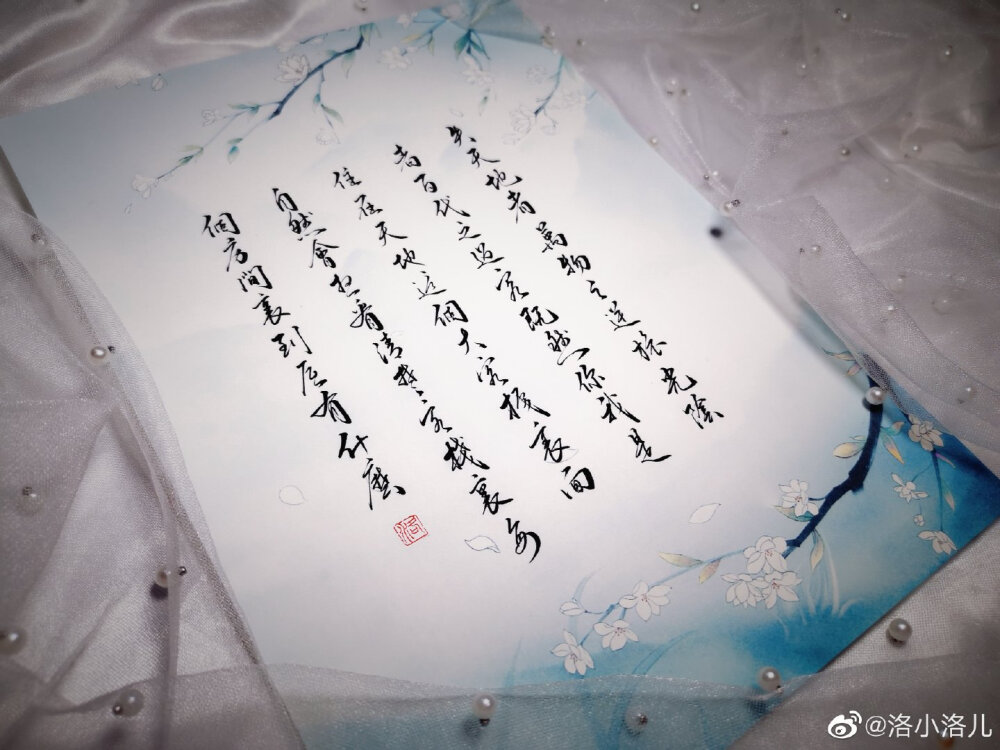 夫天地者萬物之逆旅光陰
者百代之過客既然你我是
住在天地這個大客棧裏面
自然會想看清楚客棧裏每
個房間裏到底有什麼
洛
@洛小洛儿